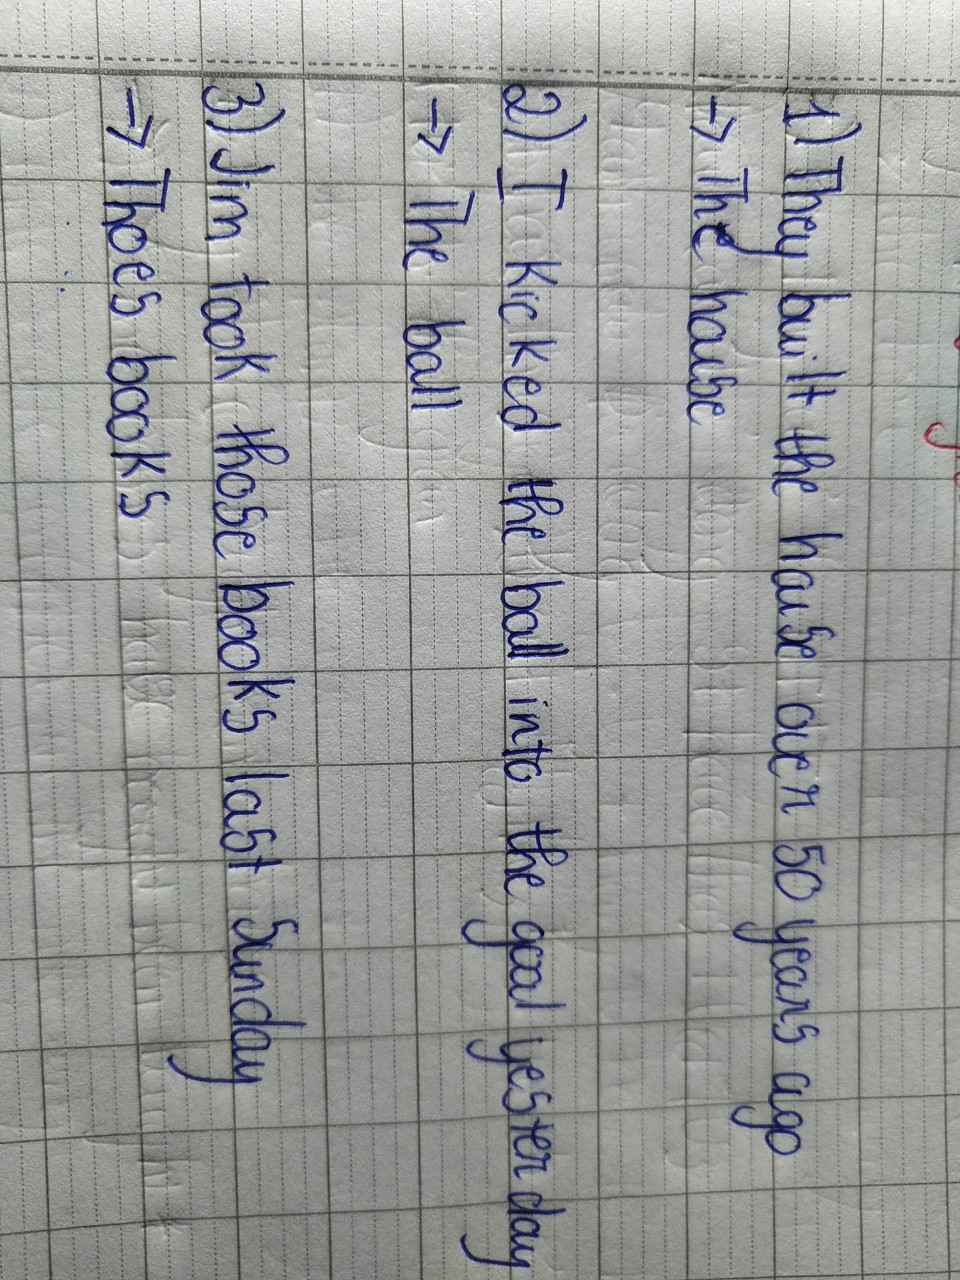 1) They built the house over 50 years ago
→ The house
2) I kicked the ball into the goal yesterday
→ The ball
3) Jim took those books last Sunday
→ Thoes books